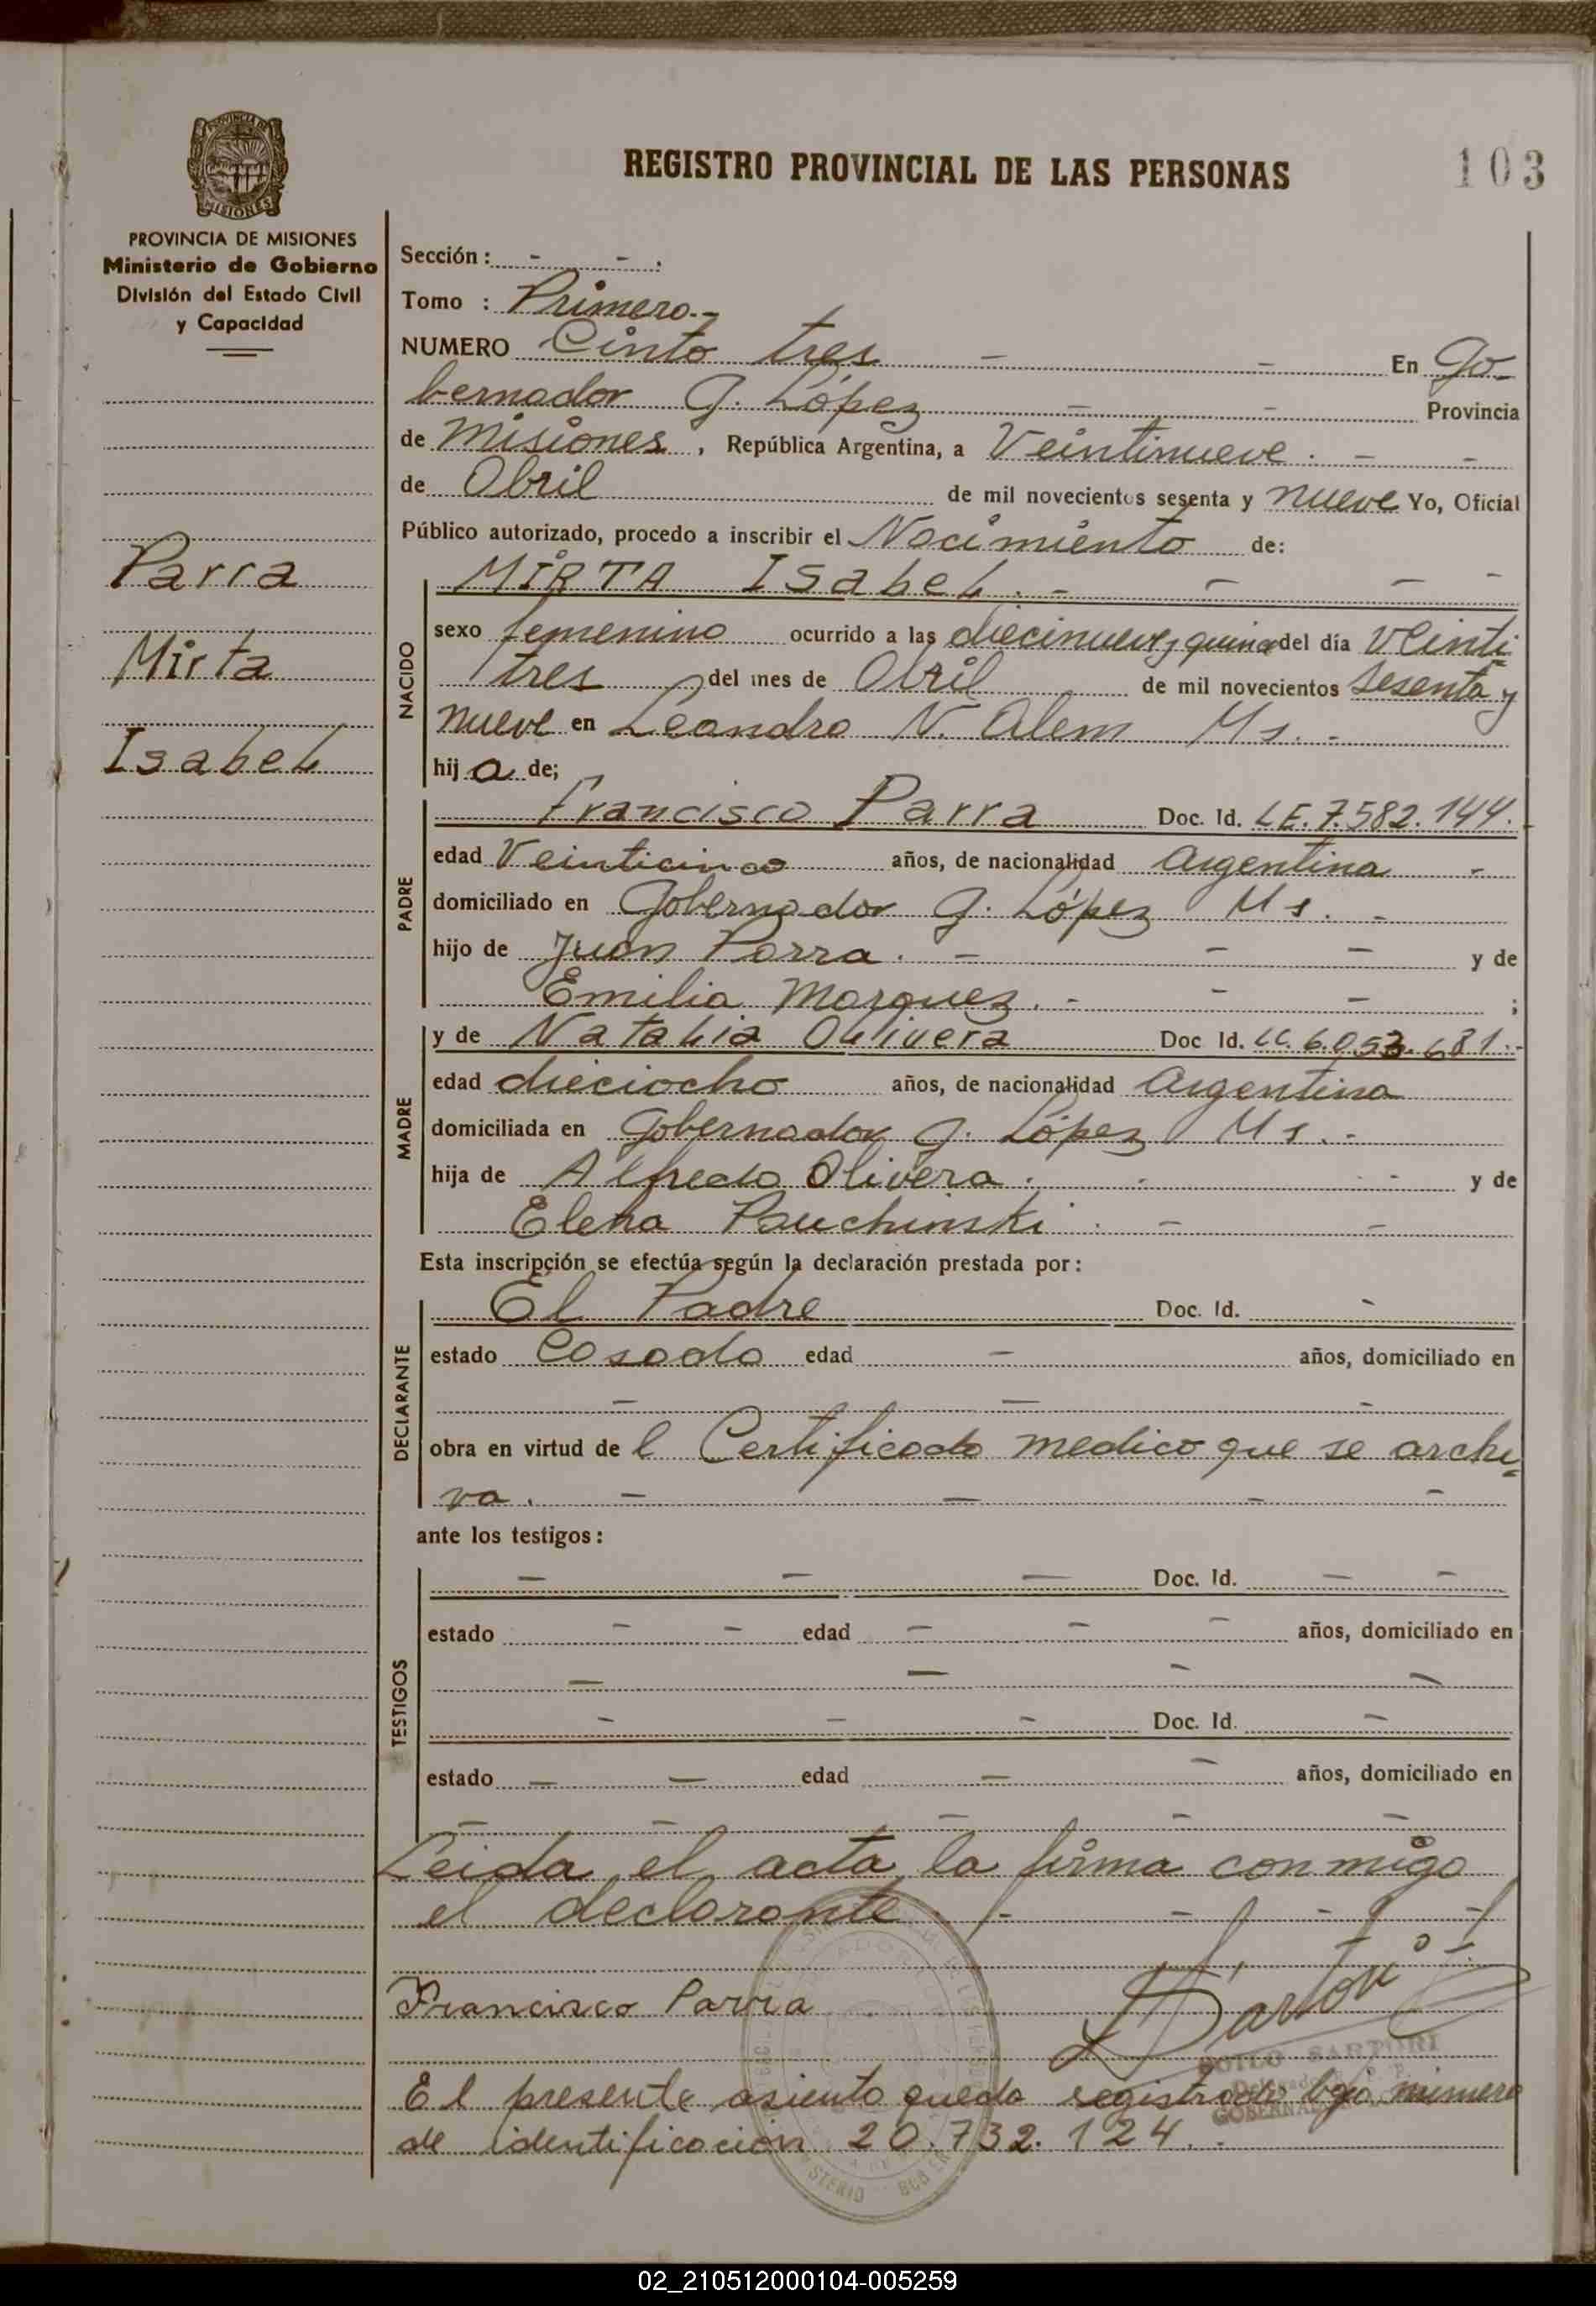 REGISTRO PROVINCIAL DE LAS PERSONAS
103
PROVINCIA DE MISIONES
MISIONES
PROVINCIA DE MISIONES
Ministerio de Gobierno
División del Estado Civil
y Capacidad
Parra
Mirta
Isabel
Sección: - - .
Tomo : Primero.-
NUMERO Cinto tres - - En Go-
bernador G. López - - Provincia
de Misiones, República Argentina, a Veintinueve. - -
de Abril de mil novecientos sesenta y nueve Yo, Oficial
Público autorizado, procedo a inscribir el Nacimiento de:
NACIDO
MIRTA Isabel. - - - -
sexo femenino ocurrido a las diecinueve y quince del día Veinti-
tres del mes de Abril de mil novecientos sesenta y
nueve en Leandro N. Alem Ms. -
hija de;
PADRE
Francisco Parra Doc. Id. LE. 7.582.144.-
edad Veinticinco años, de nacionalidad Argentina -
domiciliado en Gobernador G. López Ms. -
hijo de Juan Parra. - - - y de
Emilia Marquez. - - - ;
MADRE
y de Natalia Olivera Doc Id. LC. 6.053.681.-
edad dieciocho años, de nacionalidad Argentina
domiciliada en Gobernador G. López Ms. -
hija de Alfredo Olivera . - - y de
Elena Pauchinski . - -
Esta inscripción se efectúa según la declaración prestada por:
DECLARANTE
El Padre Doc. Id. -
estado Casado edad - años, domiciliado en
- - -
obra en virtud de l Certificado medico que se archi-
va. - - - -
ante los testigos:
TESTIGOS
- - - Doc. Id. - -
estado - - edad - - - años, domiciliado en
- - - -
- - - Doc. Id. -
estado - - edad - - años, domiciliado en
- - - -
Leida el acta la firma conmigo
el declarante. /- - - - -/
Francisco Parra
Sartori
ZOILO SARTORI
El presente asiento queda registrado bajo número
de identificación 20.732.124. -
02_210512000104-005259